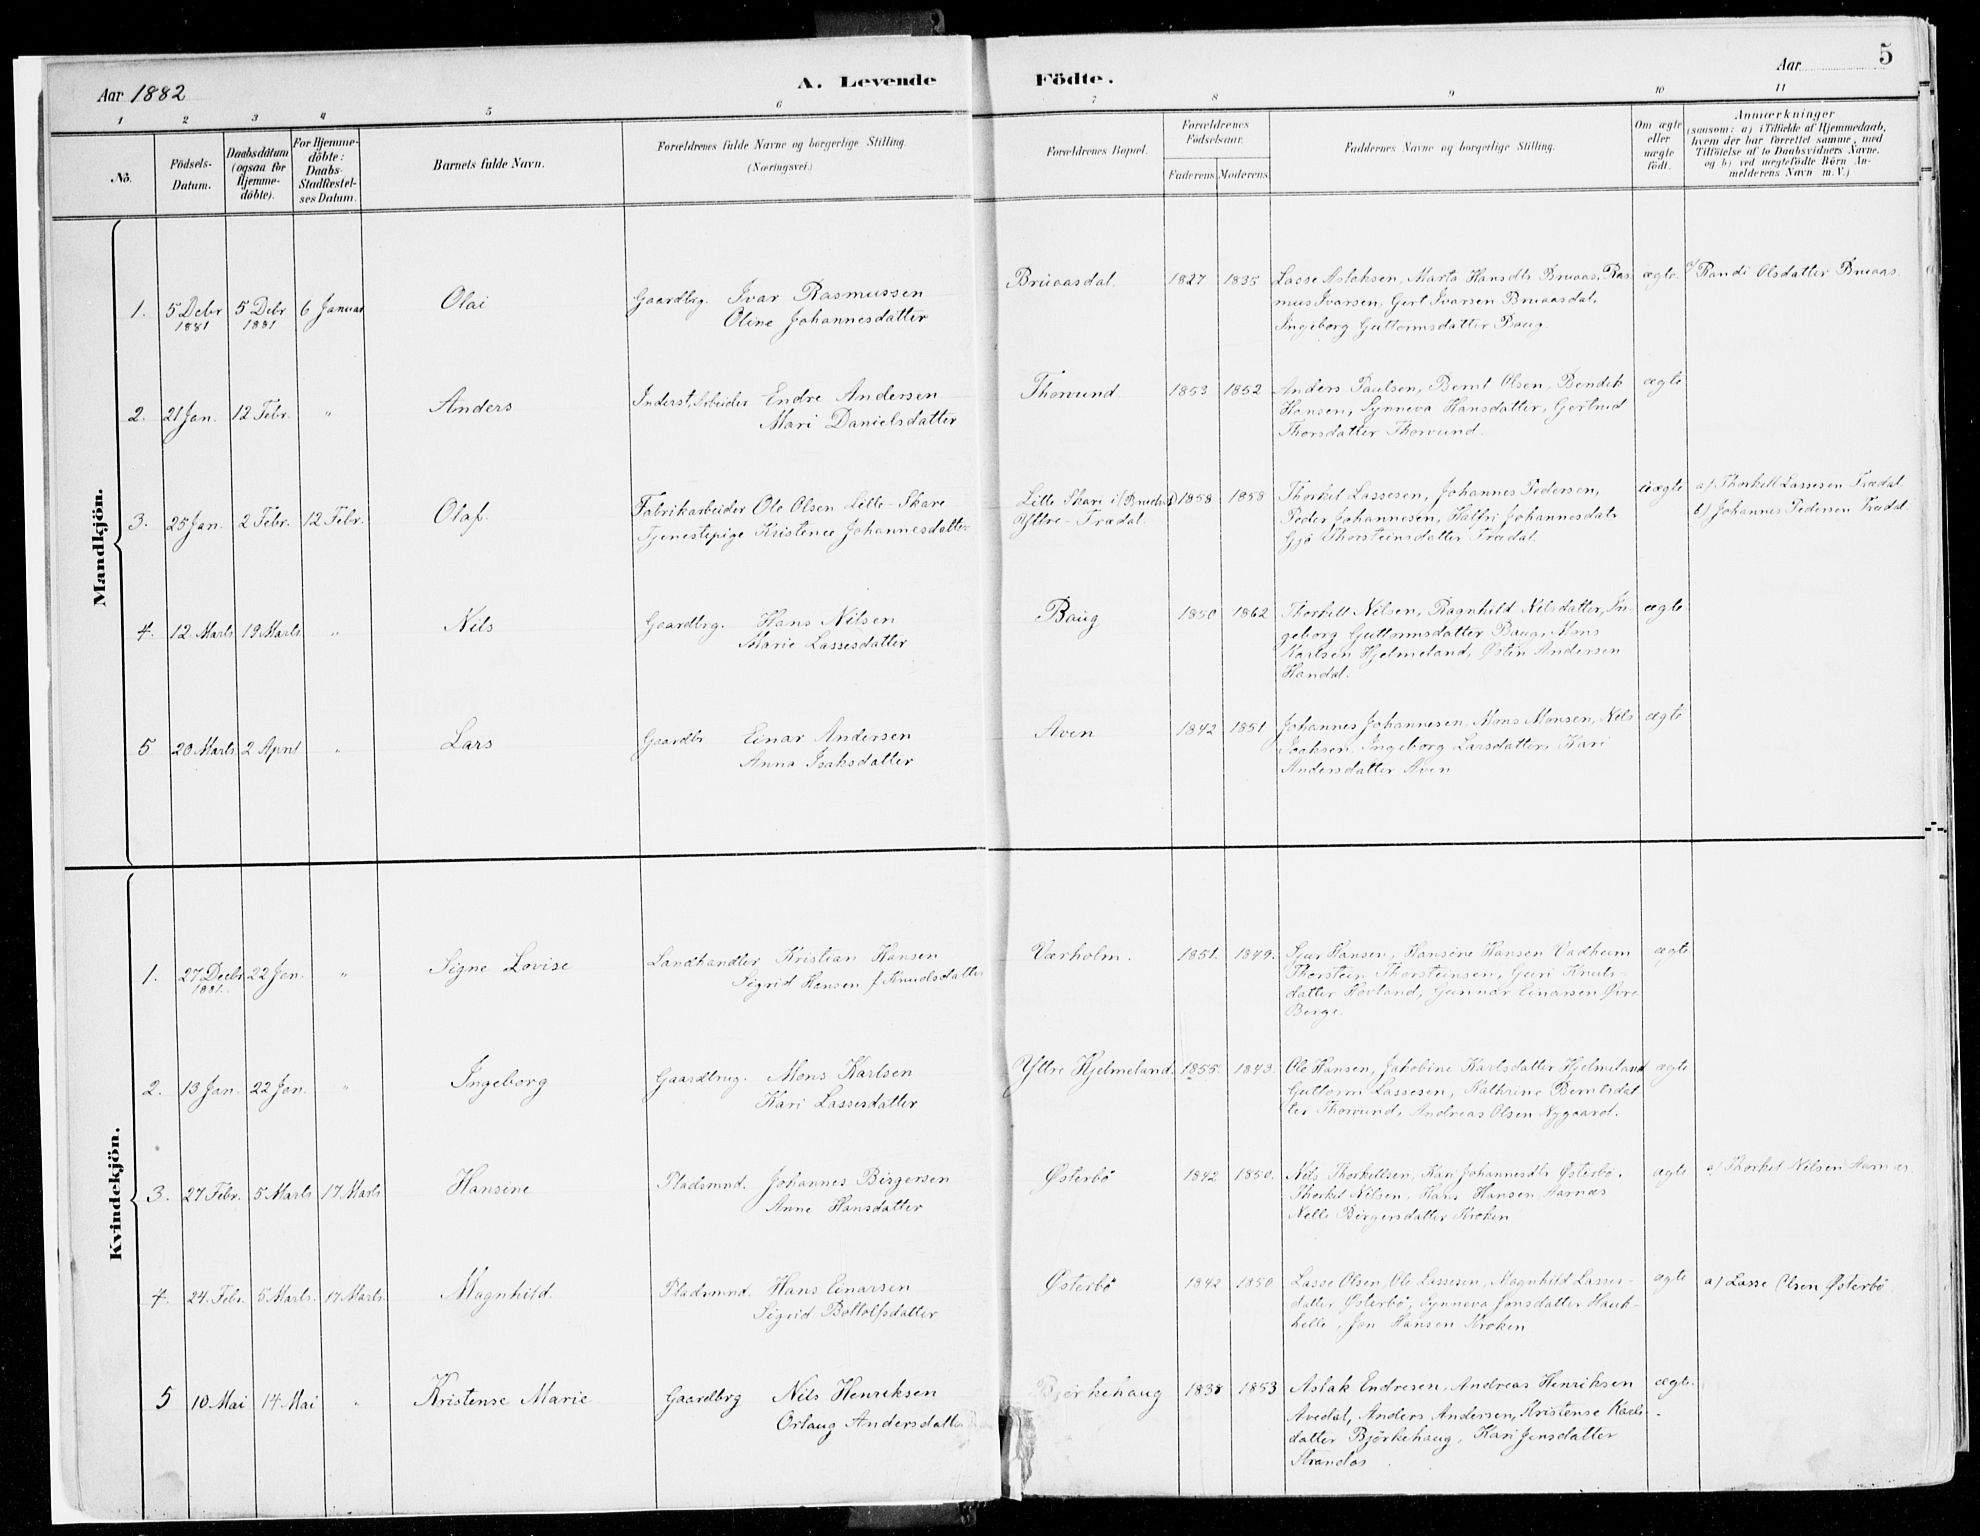 Aar 1882
A. Levende
Födte.
Aar
5
1 2 3 4 5 6 7 8 9 10 11
No.
Födsels-Datum.
Daabsdatum (ogsaa for Hjemme-döbte).
For Hjemme-döbte: Daabs-Stadfæstel-ses Datum.
Barnets fulde Navn.
Forældrenes fulde Navne og borgerlige Stilling.
(Næringsvei.)
Forældrenes Bopæl.
Forældrenes Födselsaar.
Faderens. Moderens.
Faddernes Navne og borgerlige Stilling.
Om ægte eller uægte födt.
Anmærkninger
(saasom: a) i Tilfælde af Hjemmedaab,
hvem der har forrettet samme, med
Tilföielse af to Daabsvidners Navne,
og b) ved uægtefödte Börn An-
melderens Navn m. V.)
Mandkjön.
1. 5 Debr 1881 5 Debr 1881 6 Januar Olai Gaardbrg. Ivar Rasmussen
Oline Johannesdatter
Bruaasdal. 1827 1835 Lasse Aslaksen, Marta Hansdtr Bruaas, Ras-
mus Ivarsen, Gert Ivarsen Bruaasdal,
Ingeborg Guttormsdatter Baug.
ægte. Randi Olsdatter Bruaas.
2. 21 Jan. 12 Febr. " Anders Inderst, Arbeider Endre Andersen
Mari Danielsdatter
Thorvund 1853 1852 Anders Paulsen, Bernt Olsen, Bendik
Hansen, Synneva Hansdatter, Gertrud
Thorsdatter Thorvund.
ægte
3. 25 Jan. 2 Febr. 12 Febr. Olaf. Fabrikarbeider Ole Olsen Lille-Skare
Tjenestepige Kristence Johannesdatter
Lille Skare i
Yttre-Trædal. 1858 1858 Thorkel Lassesen, Johannes Pedersen,
Peder Johannesen, Halfri Johannesdatr
Gjö Thorsteinsdatter Trædal.
uægte a) Thorkell Lassesen Trædal
b) Johannes Pedersen Trædal.
4. 12 Marts 19 Marts " Nils Gaardbrg. Hans Nilsen
Marie Lassesdatter
Baug 1850 1862 Thorkell Nilsen, Ragnhild Nilsdatter, In-
geborg Guttormsdatter Baug, Mons
Karlsen Hjelmeland, Østen Andersen
Handal.
ægte
5 20 Marts 2 April " Lars Gaardbr Einar Andersen
Anna Isaksdatter
Aven 1842 1851 Johannes Johannesen, Mons Monsen, Nils
Isaksen, Ingeborg Larsdatter, Kari
Andersdatter Aven
ægte
Kvindekjön.
1. 27 Decbr 1881. 22 Jan. " Signe Lovise Landhandler Kristian Hansen
Sigrid Hansen f. Knudsdatter
Værholm. 1851. 1849. Sjur Hansen, Hansine Hansen Vadheim
Thorstein Thorsteinsen, Guri Knuts-
datter Hovland, Gunnar Einarsen Øvre
Berge.
ægte
2. 13 Jan. 22 Jan. " Ingeborg Gaardbrug. Mons Karlsen
Kari Lassesdatter
Yttre Hjelmeland. 1855. 1843. Ole Hansen, Jakobine Karlsdatter Hjelmeland
Guttorm Lassesen, Kathrine Berntsdat-
ter Thorvund, Andreas Olsen Nygaard.
ægte
3. 27 Febr. 5 Marts 17 Marts Hansine Pladsmnd. Johannes Birgersen
Anne Hansdatter
Østerbö 1842 1850. Nils Thorkellsen, Kari Johannesdtr Østerbö.
Thorkel Nilsen, Hans Hansen Aarnæs
Nelle Birgersdatter Kroken
ægte a) Thorkel Nilsen Aarnæs.
4. 24. Febr. 5 Marts. 17 Marts. Magnhild. Pladsmnd. Hans Einarsen
Sigrid Bottolfsdatter
Østerbö 1842 1850 Lasse Olsen, Ole Lassesen, Magnhild Lasses-
datter Østerbö, Synneva Jonsdatter Hauk-
helle, Jon Hansen Kroken
ægte a) Lasse Olsen Østerbö.
5 10 Mai 14 Mai " Kristense Marie Gaardbrg Nils Henriksen
Orlaug Andersdatter
Bjørkehaug 1838 1853 Aslak Endresen, Andreas Henriksen
Avedal, Anders Andersen, Kristense Karls-
datter Björkehaug, Kari Jensdatter
Strandos.
ægte.